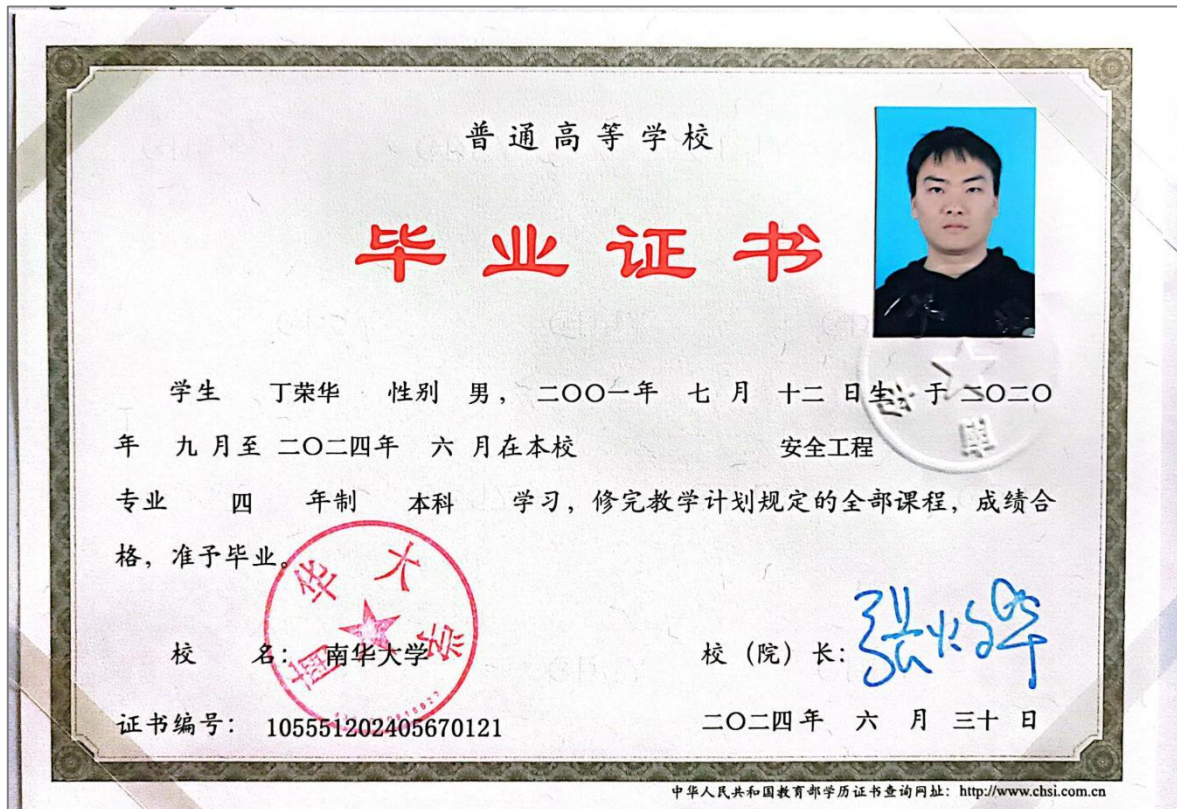 普通高等学校
毕业证书
学生 丁荣华 性别 男，二〇〇一年 七 月 十二 日生，于 二〇二〇
年 九 月至 二〇二四年 六 月在本校 安全工程
专业 四 年制 本科 学习，修完教学计划规定的全部课程，成绩合
格，准予毕业。
南华大学
校 名：南华大学 校（院）长：
证书编号：105551202405670121 二〇二四年 六 月 三十 日
中华人民共和国教育部学历证书查询网址：http://www.chsi.com.cn